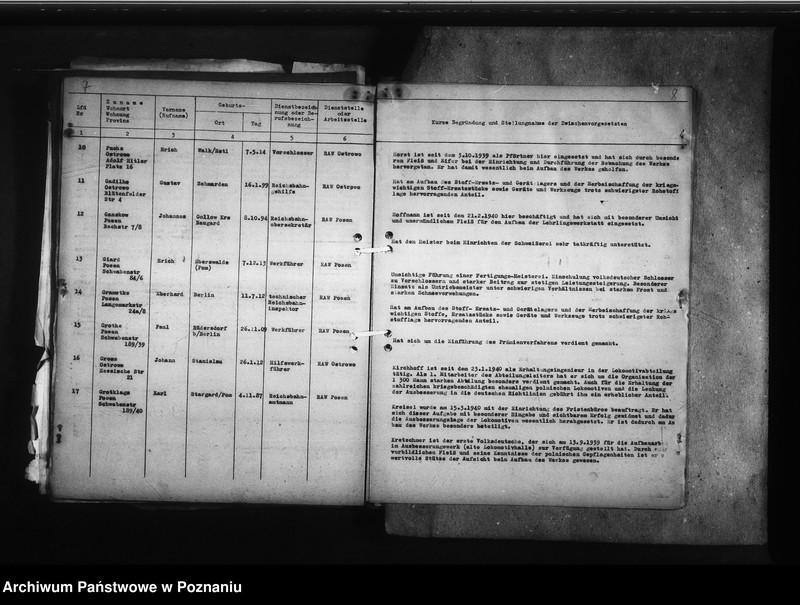 7
Lfd
Nr
Zuname
Wohnort
Wohnung
Provinz
Vorname
(Rufname)
Geburts-
Ort
Tag
Dienstbezeich
nung oder Be-
rufsbezeich-
nung
Dienststelle
oder
Arbeitsstelle
1 2 3 4 5 6
10 Fuchs Erich Walk/Estl 7.5.14 Vorschlosser RAW Ostrowo
Ostrowo
Adolf Hitler
Platz 16
11 Gustav Schmarden 16.1.99 Reichsbahn- RAW Ostrowo
Ostrowo gehilfe
Blütenfelder
Str 4
12 Ganskow Johannes Gollow Krs 8.10.94 Reichsbahn- RAW Posen
Posen Naugard obersekretär
Bachstr 7/8
13 Giard Erich Eberswalde 7.12.13 Werkführer RAW Posen
Posen (Pom)
Schwabenstr
8A/6
14 Eberhard Berlin 11.7.12 technischer RAW Posen
Posen Reichsbahn-
Langemarkstr inspektor
24a/8
15 Grothe Paul Rüdersdorf 26.11.09 Werkführer RAW Posen
Posen b/Berlin
Schwabenstr
189/39
16 Gross Johann Stanislau 26.1.12 Hilfswerk- RAW Ostrowo
Ostrowo führer
Hessische Str
21
17 Grothkags Karl Stargard/Pom 4.11.87 Reichsbahn- RAW Posen
Posen amtmann
Schwabenstr
189/40
8
Kurze Begründung und Stellungnahme der Zwischenvorgesetzten
Horst ist seit dem 3.10.1939 als Pförtner hier eingesetzt und hat sich durch besonde
ren Fleiß und Eifer bei der Einrichtung und Durchführung der Bewachung des Werkes
hervorgetan. Er hat damit wesentlich beim Aufbau des Werkes geholfen.
Hat am Aufbau des Stoff-Ersatz- und Gerätelagers und der Herbeischaffung der kriegs-
wichtigen Stoff-Ersatzstücke sowie Geräte und Werkzeuge trotz schwierigster Rohstoff
lage hervorragenden Anteil.
Hoffmann ist seit den 21.2.1940 hier beschäftigt und hat sich mit besonderer Umsicht
und unermüdlichem Fleiß für den Aufbau der Lehrlingswerkstatt eingesetzt.
Hat den Meister beim Einrichten der Schweißerei sehr tatkräftig unterstützt.
Umsichtige Führung einer Fertigungs-Meisterei. Einschulung volksdeutscher Schlosser
zu Vorschlossern und starker Beitrag zur stetigen Leistungssteigerung. Besonderer
Einsatz als Umtriebsmeister unter schwierigen Verhältnissen bei starkem Frost und
starken Schneeverwehungen.
Hat am Aufbau des Stoff- Ersatz- und Gerätelagers und der Herbeischaffung der kriegs
wichtigen Stoffe, Ersatzstücke sowie Geräte und Werkzeuge trotz schwierigster Roh-
stofflage hervorragenden Anteil.
Hat sich um die Einführung des Prämienverfahrens verdient gemacht.
Kirchhoff ist seit dem 23.1.1940 als Erhaltungsingenieur in der Lokomotivabteilung
tätig. Als 1. Mitarbeiter des Abteilungsleiters hat er sich um die Organisation der
1 300 Mann starken Abteilung besonders verdient gemacht. Auch für die Erhaltung der
zahlreichen kriegsbeschädigten ehemaligen polnischen Lokomotiven und die Lenkung
der Ausbesserung in die deutschen Richtlinien gebührt ihm ein erheblicher Anteil.
Kreisel wurde am 15.3.1940 mit der Einrichtung des Fristenbüros beauftragt. Er hat
sich dieser Aufgabe mit besonderer Hingabe und sichtbarem Erfolg gewidmet und dadurch
die Ausbesserungstage der Lokomotiven wesentlich herabgesetzt. Er ist dadurch am Auf
bau des Werkes besonders beteiligt.
Kretschmer ist der erste Volksdeutsche, der sich am 13.9.1939 für die Aufbauarbeit
in Ausbesserungswerk (alte Lokomotivhalle) zur Verfügung gestellt hat. Durch
vorbildlichen Fleiß und seine Kenntnisse der polnischen Gepflogenheiten ist er
wertvolle Stütze der Aufsicht beim Aufbau des Werkes gewesen.
Archiwum Państwowe w Poznaniu